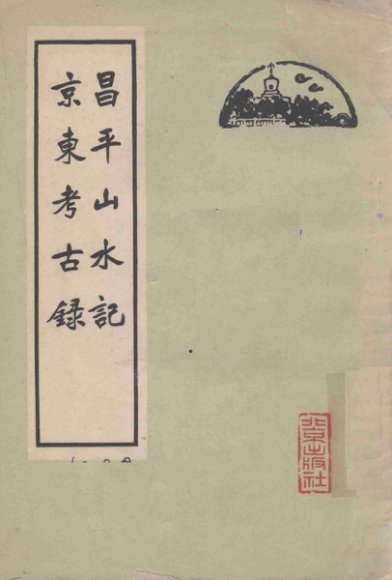 昌平山水記
京東考古録
北京出版社